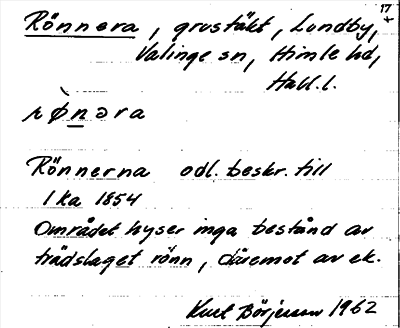 17
Rönnera, grustäkt, Lundby,
Valinge sn, Himle hd,
Hall. l.
rø̀nəra
Rönnerna odl. beskr. till
lka 1854
Området hyser inga bestånd av
trädslaget rönn, däremot av ek.
Kurt Börjesson 1962